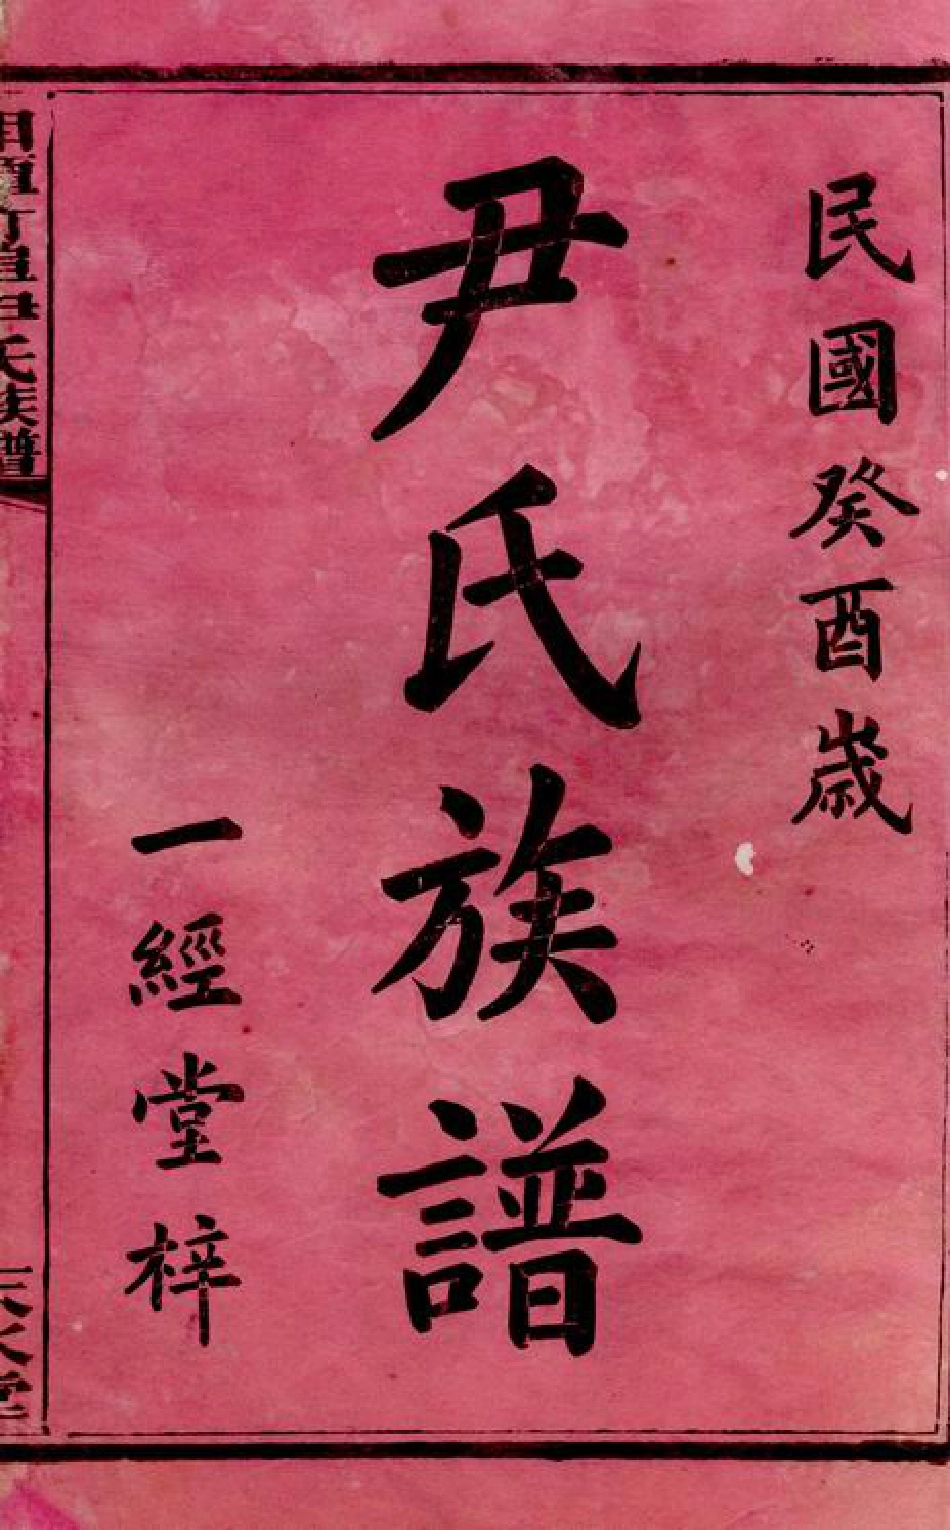 民國癸酉歲
尹氏族譜
一經堂梓
氏族譜